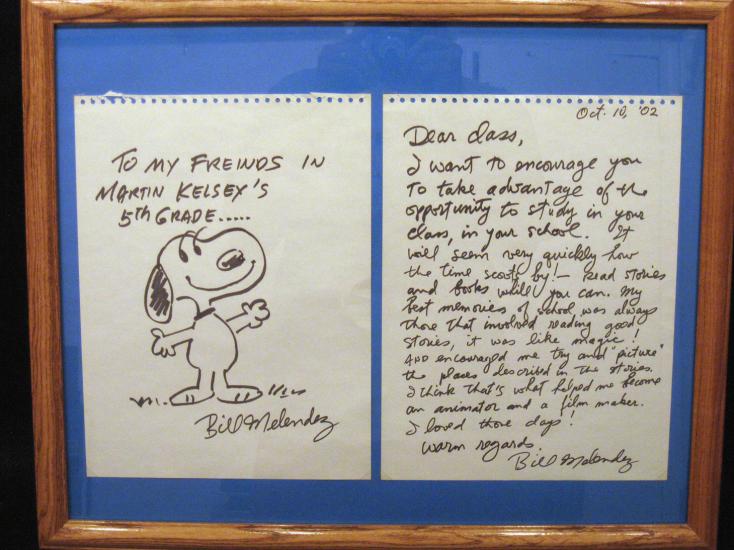 TO MY FREINDS IN
MARTIN KELSEX'S
5TH GRADE.....
Bill Melendez
Oct. 10, '02
Dear class,
I want to encourage you
to take advantage of the
opportunity to study in your
class, in your school. It
will seem very quickly how
the time scoots by! — Read stories
and books while you can. My
best memories of school was always
those that involved reading good
stories, it was like magic!
AND encouraged me try and "picture"
the places described in the stories.
I think that's what helped me become
an animator and a film maker.
I loved those days!
Warm regards
Bill Melendez